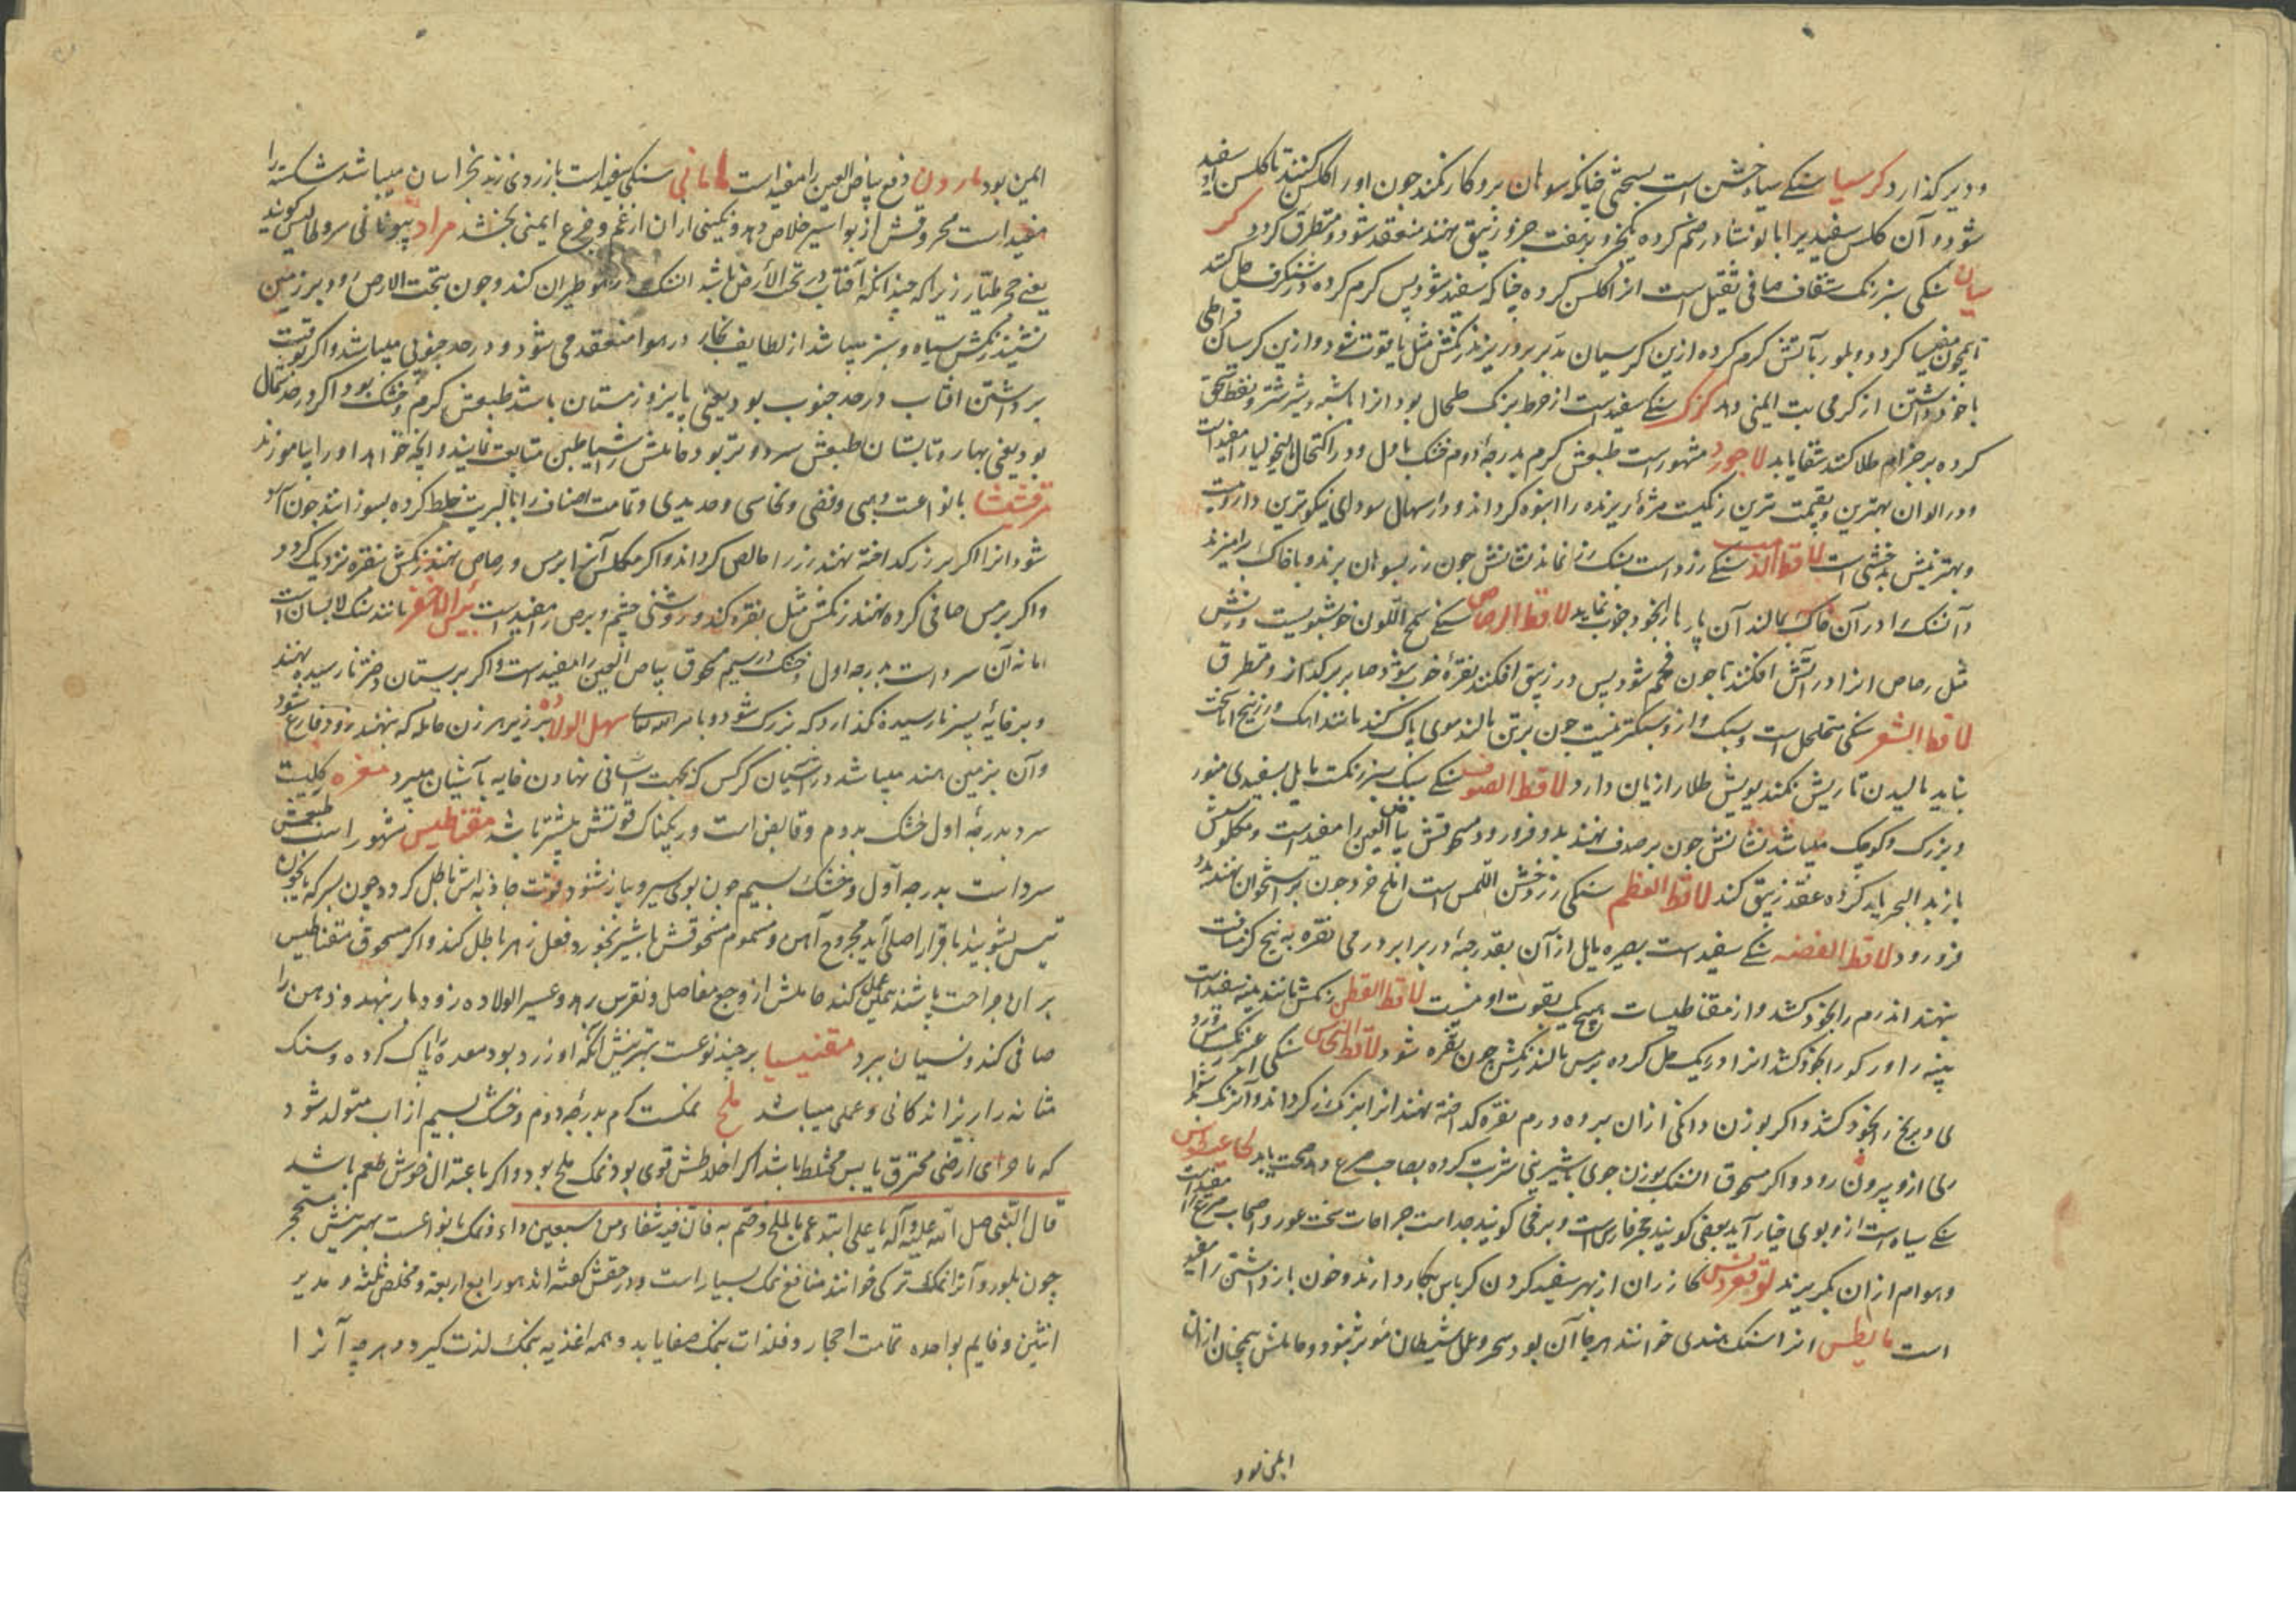 ودیر کذارد کرسیا سنکے سیاه خشن است بسختی چنانکه سوهان برو کار نکند چون او را کلس کنند تا کلس او سفید
شود و آن کلس سفید را با نوشادر ضم کرده یکجزو بر هفت جزو زیبق نهند منعقد شود و متطرق کردد کر
سیان سنکی سبز رنک شفاف صافی ثقیل است انرا کلس کرده چنانکه سفید شود پس کرم کرده در شنکرف حل کنند
کردد و بلور بآتش کرم کرده ازین کرسیان مدبر برو ریزند رنکش مثل یاقوت شود و ازین کرسیان قراطی
با خود داشتن از کرمی تب ایمنی دهد کرک سنکے سفید است از خرط بزرک طحال بود انرا
کرده بر جذام طلا کنند شفا یابد لاجورد مشهور است طبعش کرم بدرجه دوم خشک باول و در اکتحال
و در الوان بهترین و بقیمت ترین رنکیست مژه ریزنده را انبوه کرداند و در اسهال سودای نیکوترین داروست
و بهترینش بدخشی است لاقط الذهب سنکے زرد است بسنک زر نماند نشانش چون زر بسوهان برند و با خاک برامیزند
و آن سنک را در آن خاک بمالند آن پارها بخود جذب نماید لاقط الرصاص سنکے سمج اللون خوشبویست وزنش
مثل رصاص انرا در آتش افکنند تا چون فحم شود پس در زیبق افکند نقره شود صابر بر کداز و متطرق
لاقط الشعر سنکی متخلخل است و سبک و ازو سبکتر نیست چون برتن مالند موی پاک کند مانند اهک و زرنیخ اما سخت
نباید مالیدن تا ریش نکند بویش طلا را زیان دارد لاقط الصوف سنکے سبک سبز رنکست مایل بسفیدی
و بزرک و کوچک میباشد نشانش چون بر صدف نهند بدو فرو رود مسحوقش بیاض العین را مفید است و مکلوسش
با زبد البحر یاد کرده عقد زیبق کند لاقط العظم سنکی زرد خشن اللمس است چون بر استخوان نهند بدو
فرو رود لاقط الفضه سنکے سفید است بصیره مایل از آن بقدر درجه در برابر درمی نقره به پنج کز مسافت
بنهند ان درم را بخود کشد و از مقناطیسات هیچ یک بقوت او نیست لاقط القطن رنکش مانند پنبه سفید است
پنبه را و رکو را بخود کشد انرا در ریک حل کرده برمس مالند رنکش چون نقره شود لاقط النحاس سنکی
و برنج را بخود کشد و اکر بوزن دانکی ازان بر ده درم نقره کداخته نهند انرا برنک زر کرداند و آن رنک
ازو بیرون رود و اکر مسحوق ان سنک بوزن جوی بشیرینی شربت کرده بصاحب صرع دهد صحت یابد
سنکے سیاه است ازو بوی خیار آید بعضی کویند حجر فارسی است و برخی کویند جداست جراحات سخت غور و اصحاب صرع را مفید است
و هوام ازان بکریزند کازران از بهر سفید کردن کرباس بکار دارند و خون باز داشتن را مفید
است مایطس انرا سنک هندی خوانند هرجا آن بود سحر و عمل شیطان مؤثر نبود و حاملش همچنان ازان
ایمن بود
ایمن بود مارون دفع بیاض العین را مفید است مامانی سنکی سفید است با زردی زند بخراسان میباشد شکسته را
مفید است محروقش از بواسیر خلاص دهد و نکینی ازان از غم و فزع ایمنی بخشد مراد بیونانی سروطالیس کویند
یعنے حجر طیار زیراکه چندانکه آفتاب در تحت الأرض باشد ان سنک در هوا طیران کند و چون بتحت الارض رود بر زمین
نشیند رنکش سیاه و سبز میباشد از لطایف بخار در هوا منعقد می شود و در حد جنوب میباشد و اکر بوقت
برداشتن افتاب در حد جنوب بود یعنی پاییز و زمستان باشد طبعش کرم و خشک بود و اکر در حد شمال
بود یعنی بهار و تابستان طبعش سرد و تر بود حاملش را شیاطین متابعت نمایند و انچه خواهد او را بیاموزند
مرقشیشا بانواعست ذهبی و فضی و نحاسی و حدیدی و تمامت اصناف را با کبریت خلط کرده بسوزانند چون آرد
شود انرا اکر بر زر کداخته نهند زر را خالص کرداند و اکر مکلس آنرا برمس و رصاص نهند رنکش بنقره نزدیک کردد
و اکر برمس صافی کرده نهند رنکش مثل نقره کند و روشنی چشم و برص را مفید است مانند سنک لابسان است
اما نه آن سرد است بدرجه اول و خشک در سیم مسحوق بیاض العین را مفید است و اکر بر پستان دختر نارسیده نهند
و بر خایه پسر نارسیده نکذارد که بزرک شود و بامر الله تعالی سهل الولاده بر زیر هر زن حامله که نهند زود فارغ شود
و آن بزمین هند میباشد در آشیان کرکس که بجهت آسانی نهادن خایه بآشیان میبرد مغره کلیست
سرد بدرجه اول خشک بدوم و قابض است و ریکناک قوتش بیشتر باشد مقناطیس مشهور است طبعش
سرد است بدرجه آول و خشک بسیم چون بوی سیر و پیاز شنود قوت جاذبه اش باطل کردد و چون بسرکه یا بخون
تیس بشویند باقرار اصلی آید مجروح آهن و مسموم مسحوقش با شیر بخورد فعل زهر باطل کند و اکر مسحوق مقناطیس
بر ان جراحت پاشند همین عمل کند حاملش از وجع مفاصل و نقرس برهد و عسیر الولاده زود بار بنهد و ذهن را
صافی کند و نسیان ببرد مغنیسیا بر چند نوعست بهترینش آنکه او زرد بود معده را پاک کرده و سنک
مثانه را ریزاند کانی و عملی میباشد ملح نمکست کرم بدرجه دوم و خشک بسیم از اب متولد شود
که با جزای ارضی محترق یابس مختلط باشد اکر اختلاطش قوی بود نمک تلخ بود و اکر باعتدال خوش طعم باشد
قال النبی صلی الله علیه و آله یا علی ابتدء بالملح و ختم به فان فیه شفاء من سبعین داء و نمک بانواعست بهترینش متحجر
چون بلور و آنرا نمک ترکی خوانند منافع نمک بسیار است و در حقش کفته اند هو رابع اربعة و مخلص ثلثه و مدبر
اثنین و قایم بواحده تمامت احجار و فلذات بنمک صفا یابد و همه اغذیه بنمک لذت کیرد و هرچه آنرا